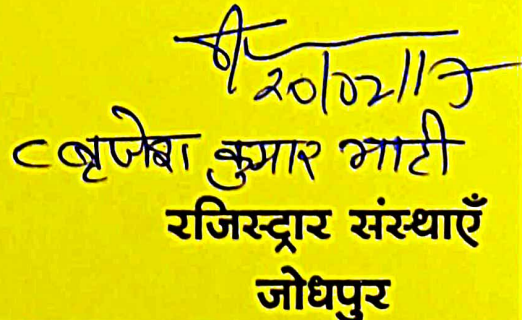 20/02/17
(बृजेश कुमार भाटी
रजिस्ट्रार संस्थाएँ
जोधपुर